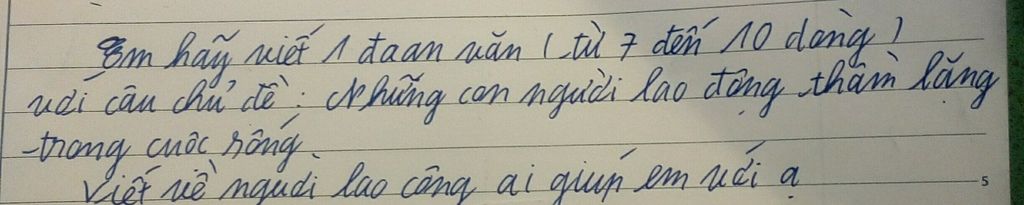 Em hãy viết 1 đoạn văn ( từ 7 đến 10 dòng )
với câu chủ đề : Những con người lao động thầm lặng
trong cuộc sống.
Viết về người lao công ai giúp em với ạ
5